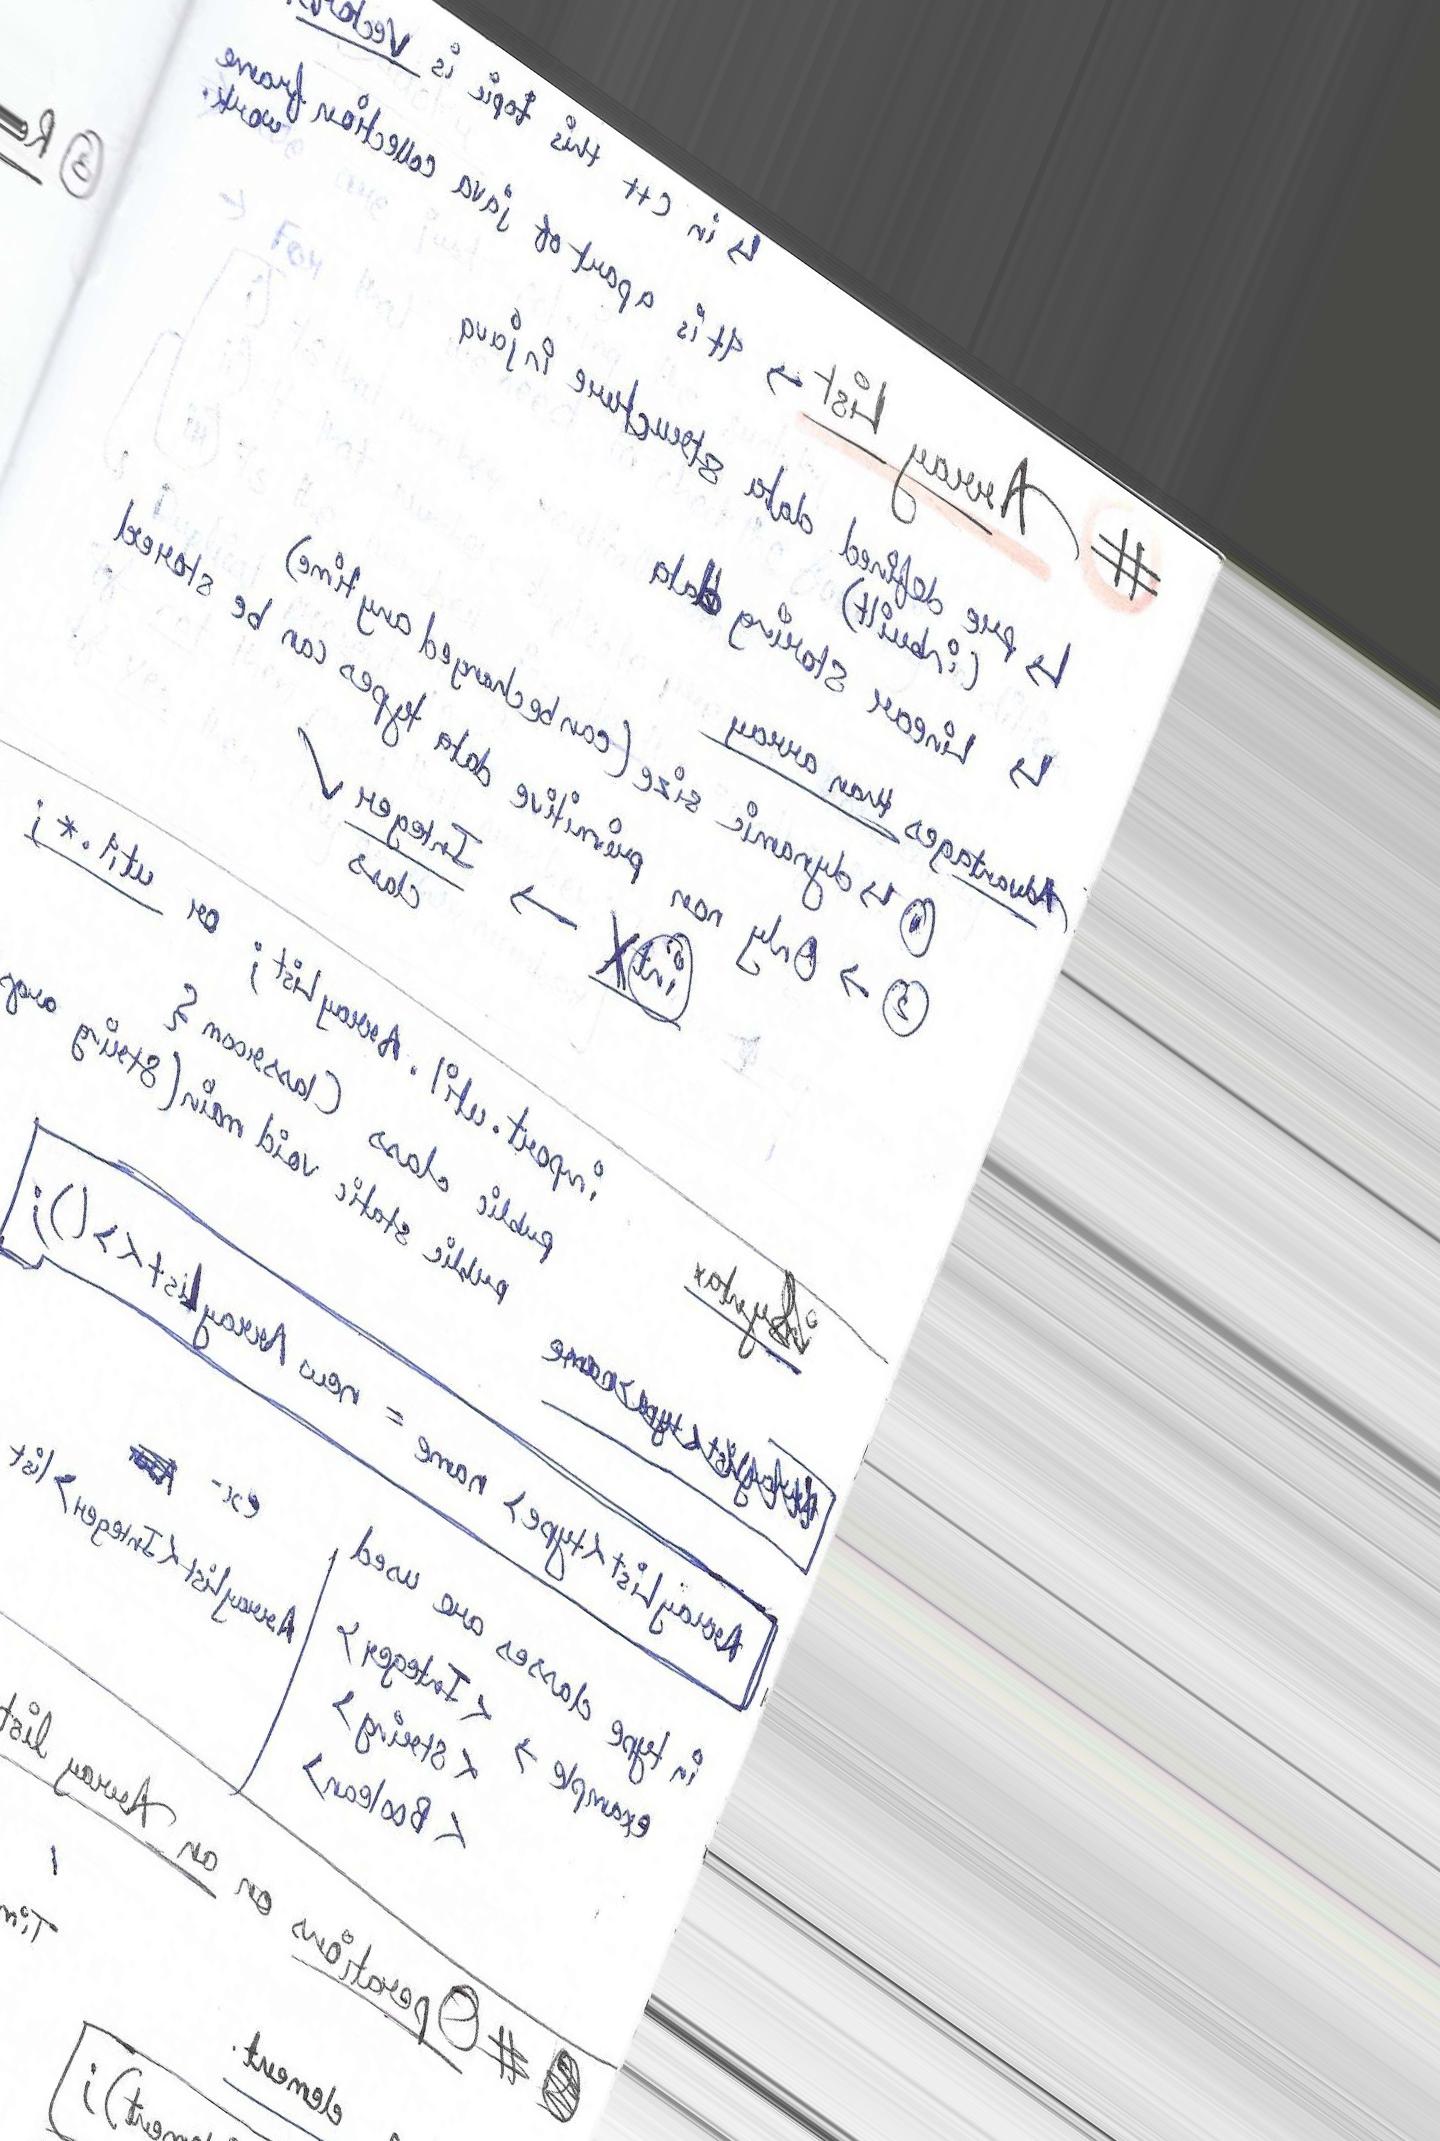 ↳ in C++ this topic is Vectors.
# Array List → It is a part of java collection frame work.
↳ pre defined data structure in java
(inbuilt)
↳ Linear storing data
Advantages than array
① ↳ dynamic size (can be changed any time)
② → Only non primitive data types can be stored
int X → Integer ✓
class
import.util.ArrayList; or util.*;
public class Classroom {
public static void main(String args
Syntax
ArrayList<type> name = new ArrayList<>();
in type classes are used
example → <Integer>
<String>
<Boolean>
ex-
ArrayList<Integer> list
# Operations on an Array list
element.
element);
③ Re